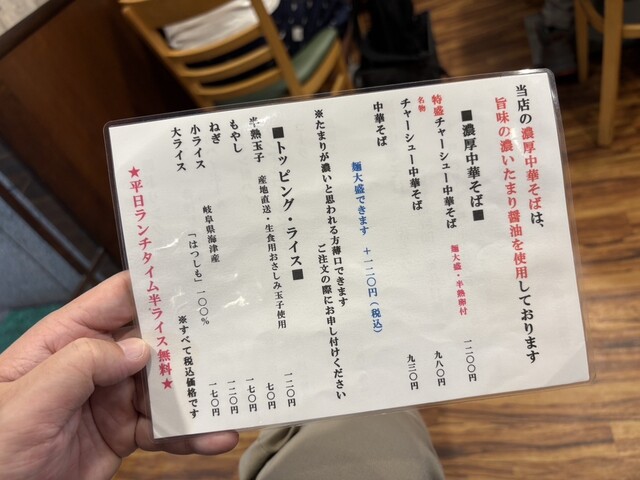 当店の濃厚中華そばは、
旨味の濃いたまり醤油を使用しております
■濃厚中華そば■
特盛チャーシュー中華そば 麺大盛・半熟卵付 一二〇〇円
名物
チャーシュー中華そば 九八〇円
中華そば 九三〇円
麺大盛できます +一二〇円(税込)
※たまりが濃いと思われる方薄口できます
ご注文の際にお申し付けください
■トッピング・ライス■
半熟玉子 産地直送・生食用おさしみ玉子使用 一二〇円
もやし 七〇円
ねぎ 一七〇円
小ライス 岐阜県海津産 一二〇円
大ライス 「はつしも」一〇〇% 一七〇円
※すべて税込価格です
★平日ランチタイム半ライス無料★